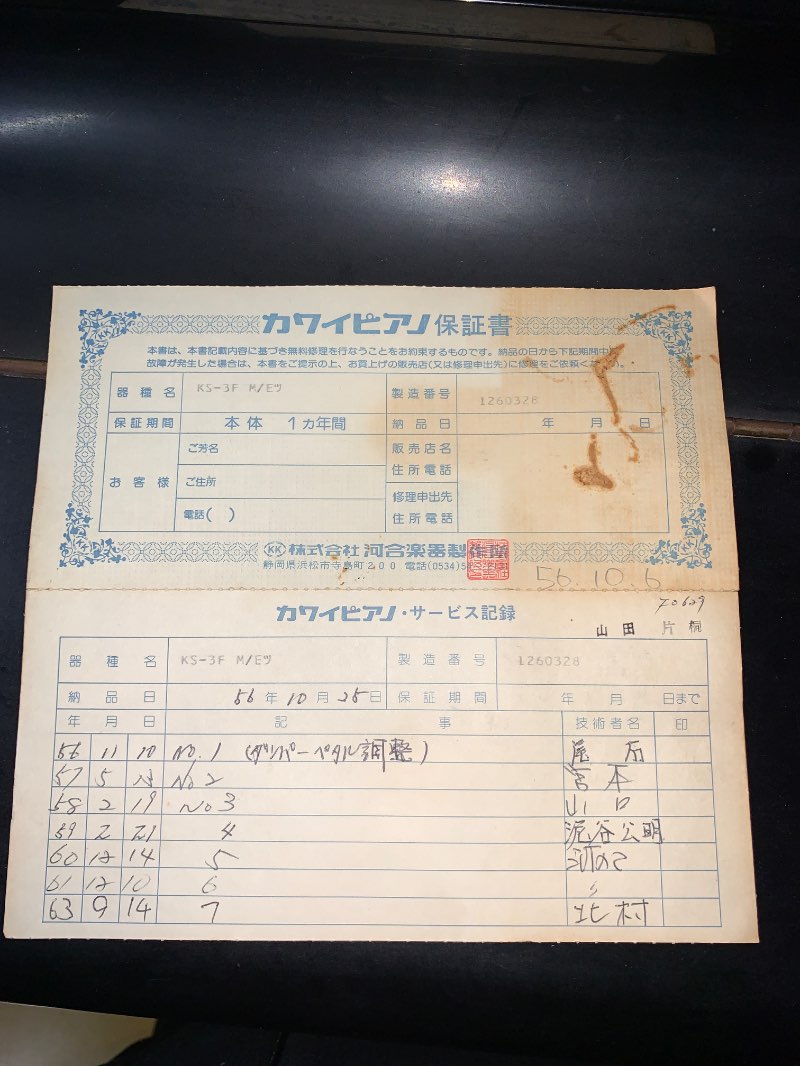 カワイピアノ保証書
本書は、本書記載内容に基づき無料修理を行なうことをお約束するものです。納品の日から下記期間中に
故障が発生した場合は、本書をご提示の上、お買上げの販売店(又は修理申出先)に修理をご依頼ください。
器種名 KS-3F M/Eツ 製造番号 1260328
保証期間 本体 1ヵ年間 納品日 年 月 日
お客様 ご芳名 販売店名
住所電話
ご住所
修理申出先
電話( ) 住所電話
KK 株式会社 河合楽器製作所
静岡県浜松市寺島町200 電話(0534)
56.10.6
70629
カワイピアノ・サービス記録
山田 片桐
器種名 KS-3F M/Eツ 製造番号 1260328
納品日 56年10月25日 保証期間 年 月 日まで
年 月 日 記事 技術者名 印
56 11 10 No.1 (ダンパーペタル調整)
57 5 No2 宮本
58 2 19 No3 山口
59 2 21 4 泥谷公明
60 12 14 5
61 12 10 6 〃
63 9 14 7 北村